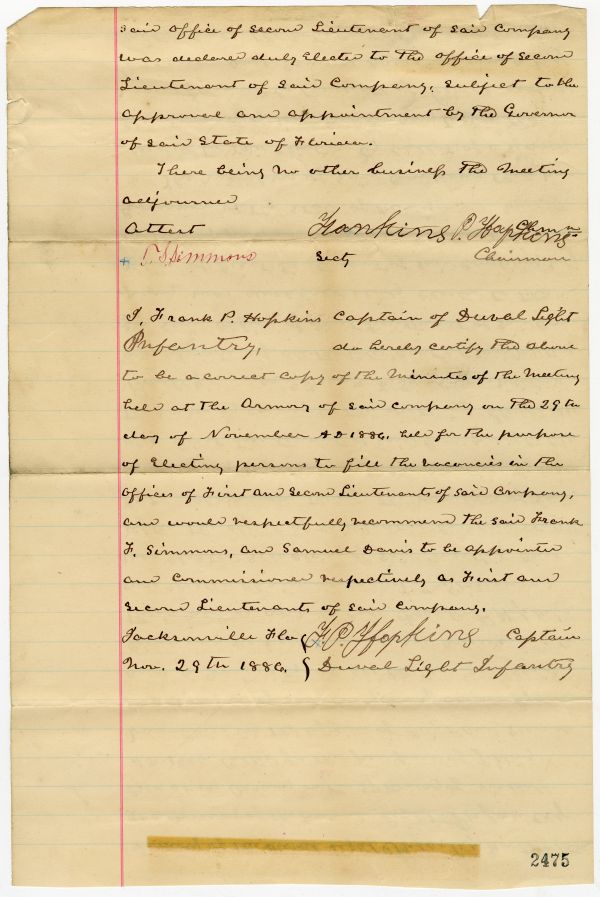 said office of Second Lieutenant of said Company
was declared duly Elected to the office of Second
Lieutenant of said Company, subject to the
approval and appointment by the Governor
of said State of Florida.
There being no other business the Meeting
adjourned
Attest
Frankins P. Hopkins
Simmons Secty Chairman
I, Frank P. Hopkins Captain of Duval Light
Infantry, do hereby certify the above
to be a correct copy of the Minutes of the Meeting
held at the Armory of said company on the 29th
day of November AD 1886. held for the purpose
of Electing persons to fill the vacancies in the
offices of First and Second Lieutenants of said Company,
and would respectfully recommend the said Frank
F. Simmons, and Samuel Davis to be appointed
and Commissioned respectively as First and
Second Lieutenants of said Company.
Jacksonville Fla { F. P. Hopkins Captain
Nov. 29th 1886. { Duval Light Infantry
2475